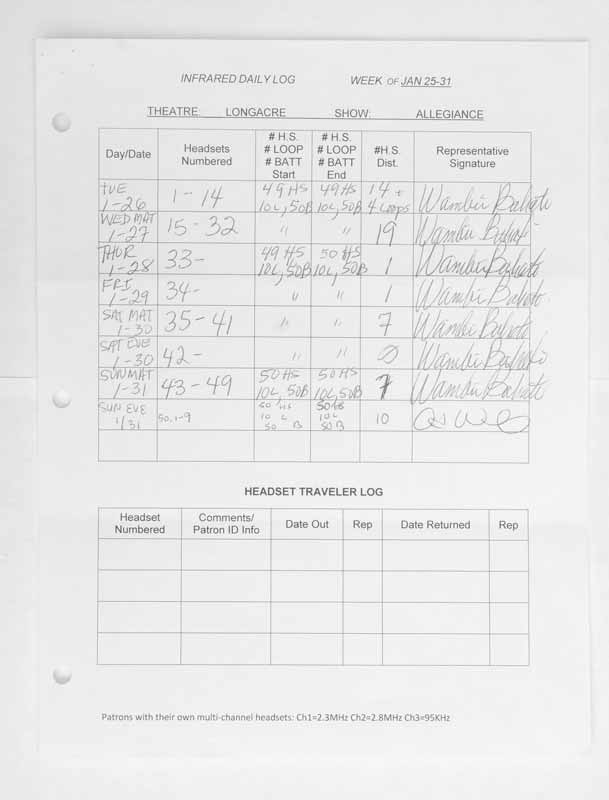 INFRARED DAILY LOG WEEK OF JAN 25-31
THEATRE: LONGACRE SHOW: ALLEGIANCE
Day/Date
Headsets
Numbered
# H.S.
# LOOP
# BATT
Start
# H.S.
# LOOP
# BATT
End
#H.S.
Dist.
Representative
Signature
TUE
1-26
1-14
49 HS
10L, 50B
49 HS
10L, 50B
14 +
4 Loops
WED MAT
1-27
15-32
"
"
19
THUR
1-28
33-
49 HS
10L, 50B
50 HS
10L, 50B
1
FRI
1-29
34-
"
"
1
SAT MAT
1-30
35-41
"
"
7
SAT EVE
1-30
42-
"
"
0
SUN MAT
1-31
43-49
50 HS
10L, 50B
50 HS
10L, 50B
7
SUN EVE
1/31
50, 1-9
50 HS
10 L
50 B
50 HS
10L
50B
10
HEADSET TRAVELER LOG
Headset
Numbered
Comments/
Patron ID Info
Date Out
Rep
Date Returned
Rep
Patrons with their own multi-channel headsets: Ch1=2.3MHz Ch2=2.8MHz Ch3=95KHz